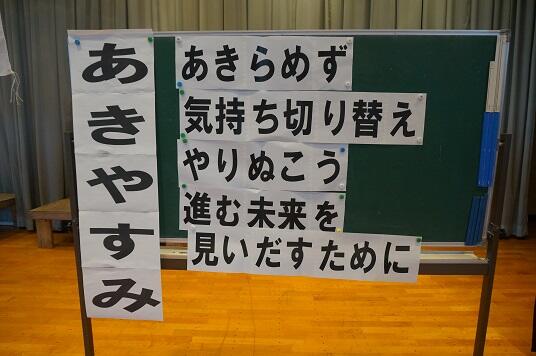 あきやすみ
あきらめず
気持ち切り替え
やりぬこう
進む未来を
見いだすために